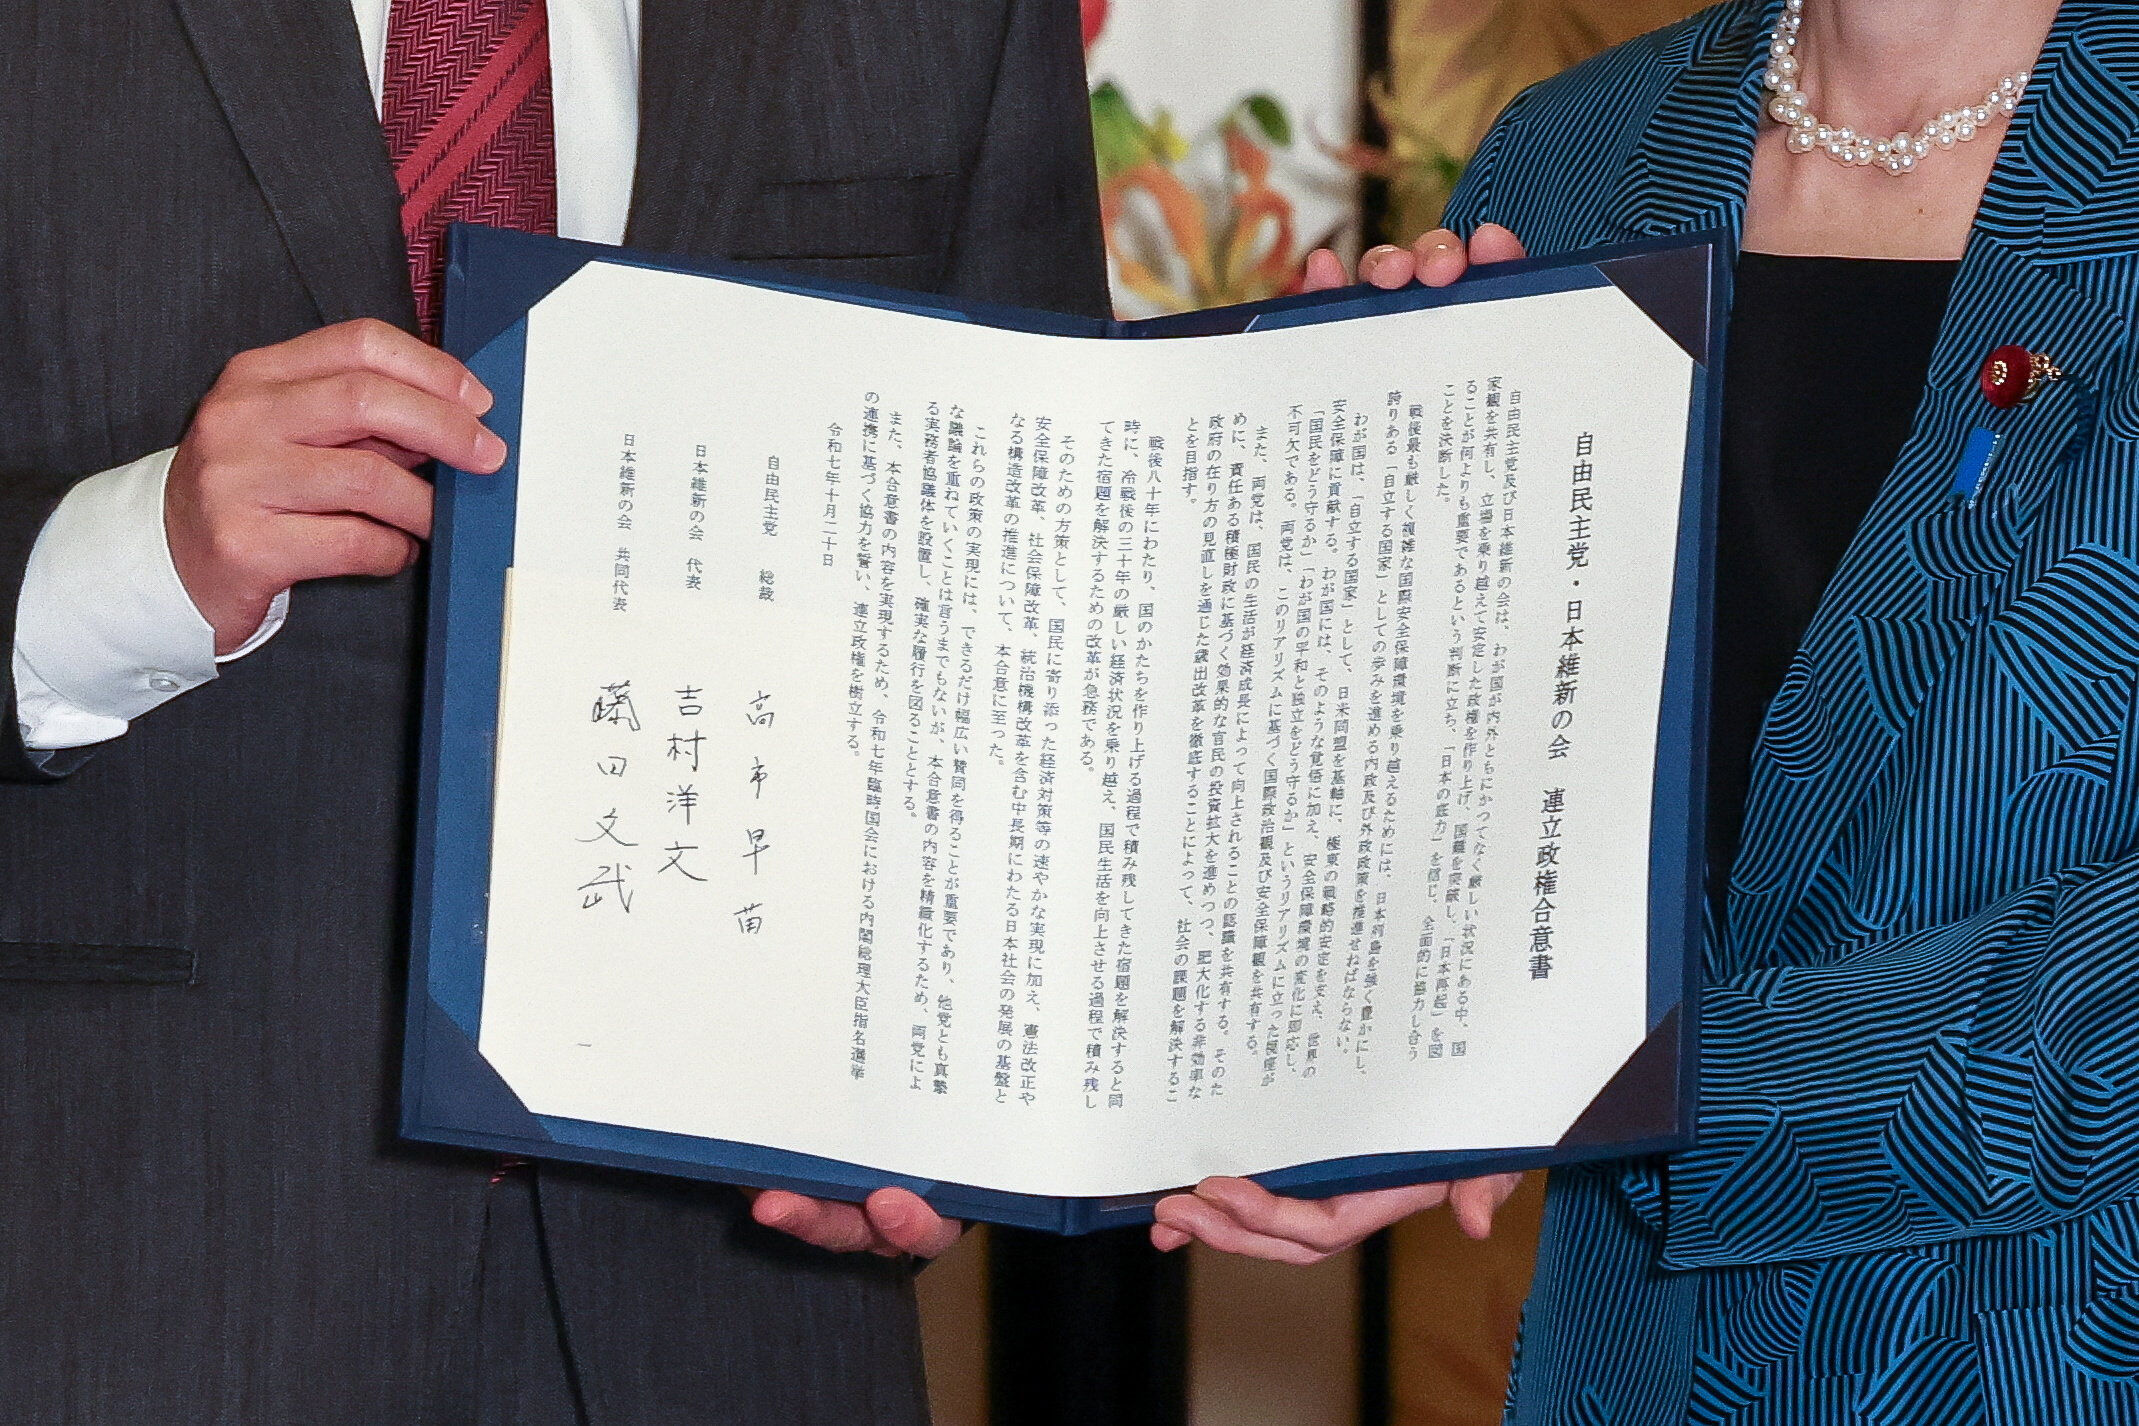 自由民主党・日本維新の会　連立政権合意書
自由民主党及び日本維新の会は、わが国が内外ともにかつてなく厳しい状況にある中、国
家観を共有し、立場を乗り越えて安定した政権を作り上げ、国難を突破し、「日本再起」を図
ることが何よりも重要であるという判断に立ち、「日本の底力」を信じ、全面的に協力し合う
ことを決断した。
戦後最も厳しく複雑な国際安全保障環境を乗り越えるためには、日本列島を強く豊かにし、
誇りある「自立する国家」としての歩みを進める内政及び外交政策を推進せねばならない。
わが国は、「自立する国家」として、日米同盟を基軸に、極東の戦略的安定を支え、世界の
安全保障に貢献する。わが国には、そのような覚悟に加え、安全保障環境の変化に即応し、
「国民をどう守るか」「わが国の平和と独立をどう守るか」というリアリズムに立った視座が
不可欠である。両党は、このリアリズムに基づく国際政治観及び安全保障観を共有する。
また、両党は、国民の生活が経済成長によって向上されることの認識を共有する。そのた
めに、責任ある積極財政に基づく効果的な官民の投資拡大を進めつつ、肥大化する非効率な
政府の在り方の見直しを通じた歳出改革を徹底することによって、社会の課題を解決するこ
とを目指す。
戦後八十年にわたり、国のかたちを作り上げる過程で積み残してきた宿題を解決すると同
時に、冷戦後の三十年の厳しい経済状況を乗り越え、国民生活を向上させる過程で積み残し
てきた宿題を解決するための改革が急務である。
そのための方策として、国民に寄り添った経済対策等の速やかな実現に加え、憲法改正や
安全保障改革、社会保障改革、統治機構改革を含む中長期にわたる日本社会の発展の基盤と
なる構造改革の推進について、本合意に至った。
これらの政策の実現には、できるだけ幅広い賛同を得ることが重要であり、他党とも真摯
な議論を重ねていくことは言うまでもないが、本合意書の内容を精緻化するため、両党によ
る実務者協議体を設置し、確実な履行を図ることとする。
また、本合意書の内容を実現するため、令和七年臨時国会における内閣総理大臣指名選挙
の連携に基づく協力を誓い、連立政権を樹立する。
令和七年十月二十日
自由民主党　総裁　高市早苗
日本維新の会　代表　吉村洋文
日本維新の会　共同代表　藤田文武
一